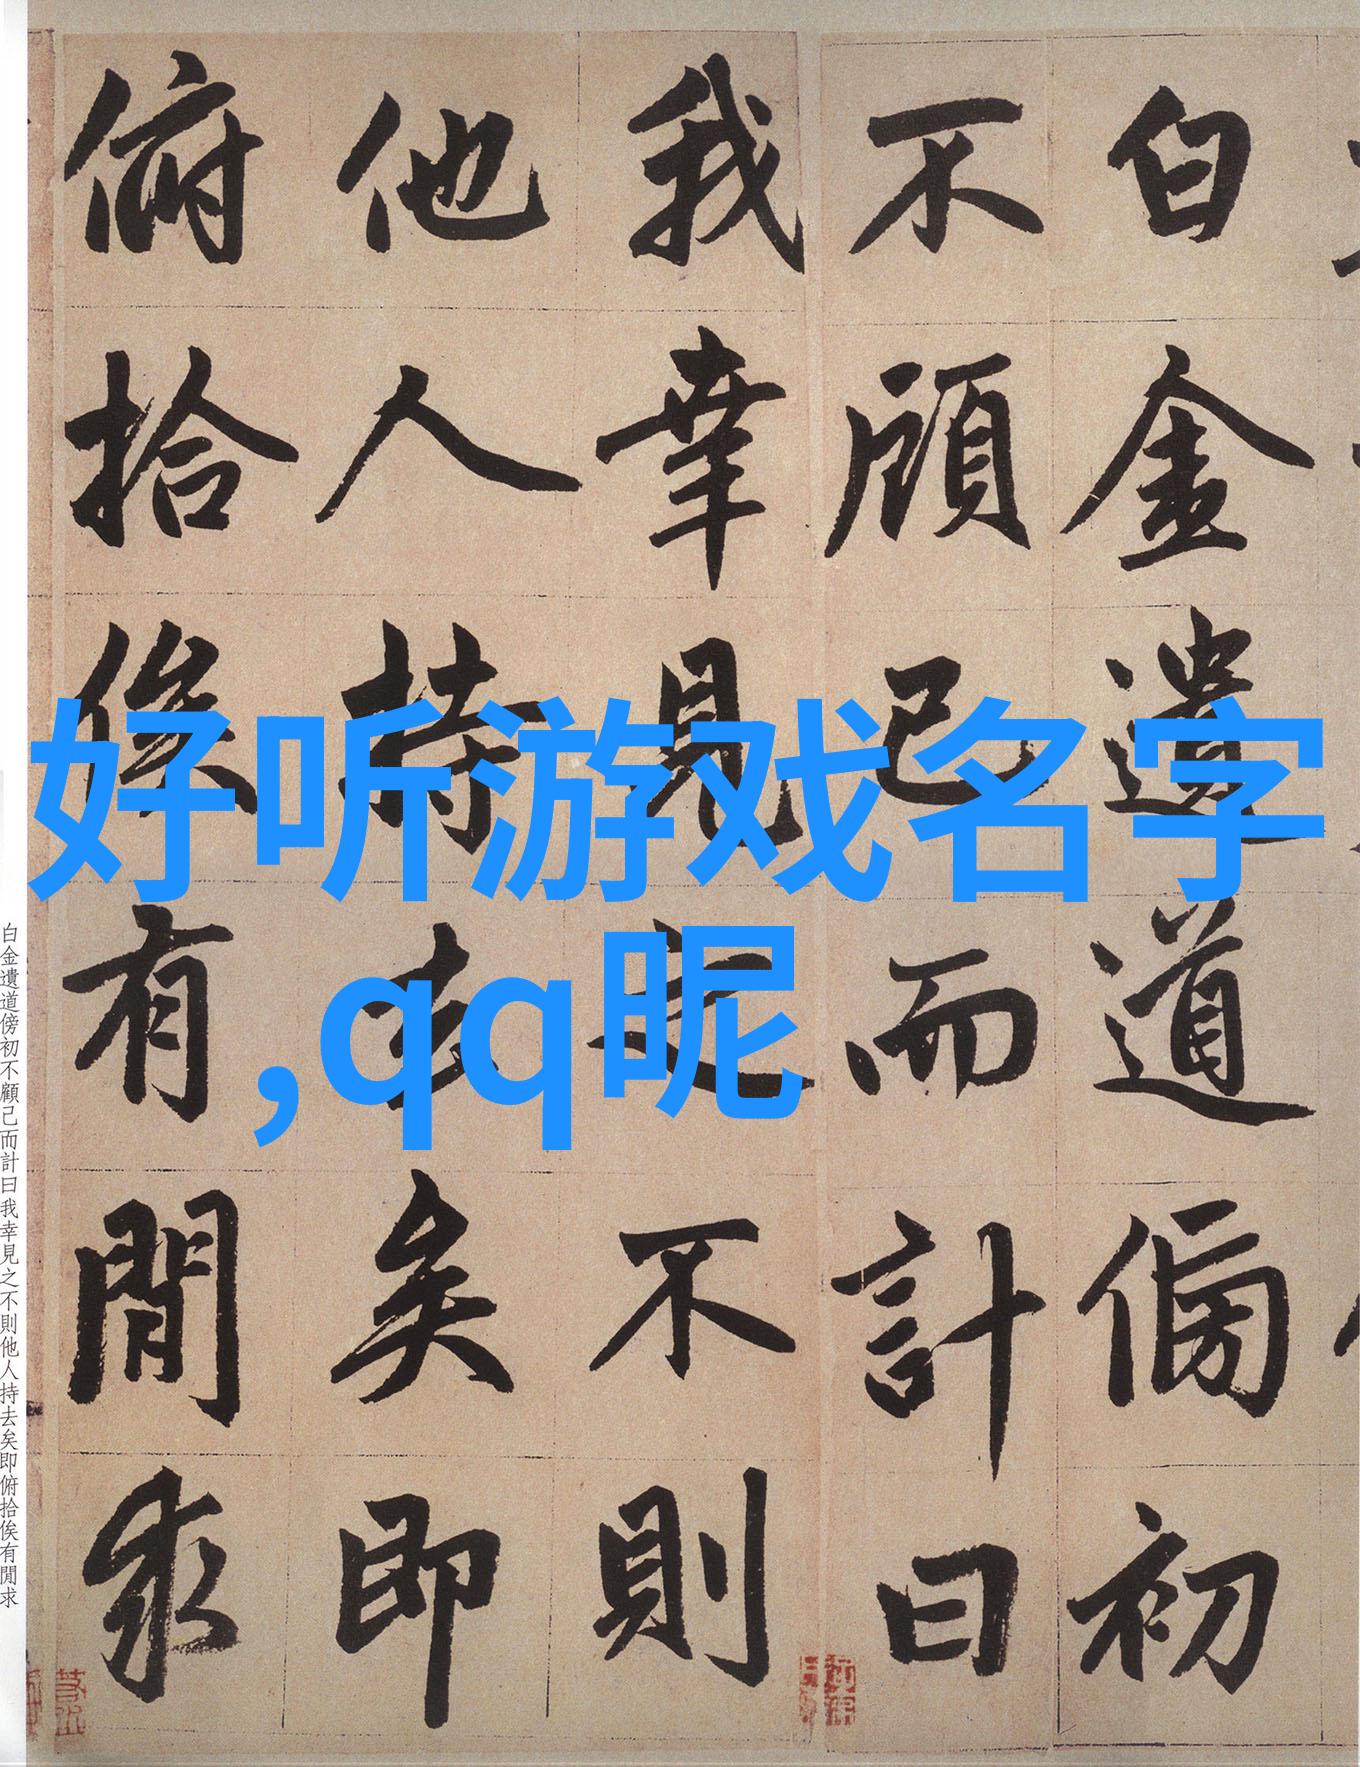 好听游戏名字
,qq昵
白金遺道傍初
不顧己而計曰
我幸見之不則
他人持去矣即
俯拾俟有閒求
白金遺道傍初不顧己而計曰我幸見之不則他人持去矣即俯拾俟有閒求